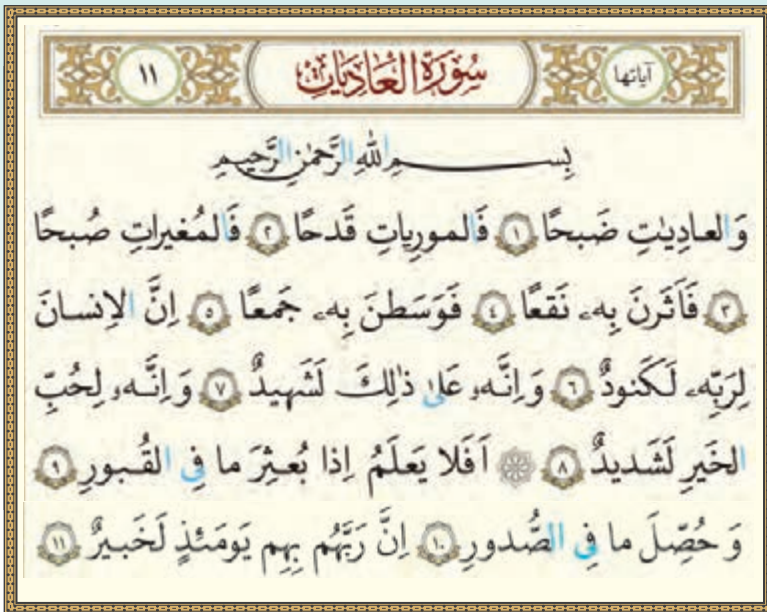 آیاتها سُورَةُ العَادِيَاتِ ١١
بِسمِ اللّٰهِ الرَّحمٰنِ الرَّحیمِ
وَ العادِیٰتِ ضَبحًا ١ فَالمورِیاتِ قَدحًا ٢ فَالمُغیراتِ صُبحًا
٣ فَاَثَرنَ بِهٖ نَقعًا ٤ فَوَسَطنَ بِهٖ جَمعًا ٥ اِنَّ الاِنسانَ
لِرَبِّهٖ لَكَنودٌ ٦ وَ اِنَّهٗ عَلیٰ ذٰلِكَ لَشَهیدٌ ٧ وَ اِنَّهٗ لِحُبِّ
الخَیرِ لَشَدیدٌ ٨ ۞ اَفَلا یَعلَمُ اِذا بُعثِرَ ما فِی القُبورِ ٩
وَ حُصِّلَ ما فِی الصُّدورِ ١٠ اِنَّ رَبَّهُم بِهِم یَومَئِذٍ لَخَبیرٌ ١١